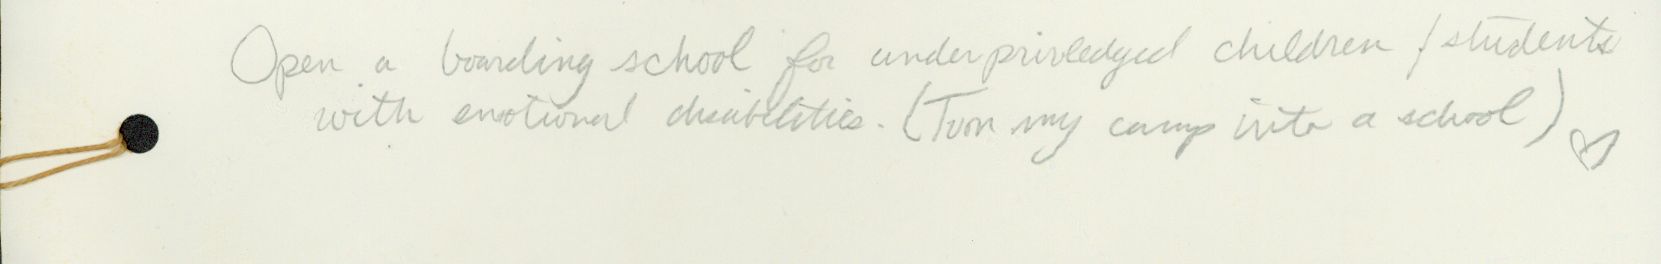 Open a boarding school for underprivledged children / students
with emotional disabilities. (Turn my camp into a school) ♡